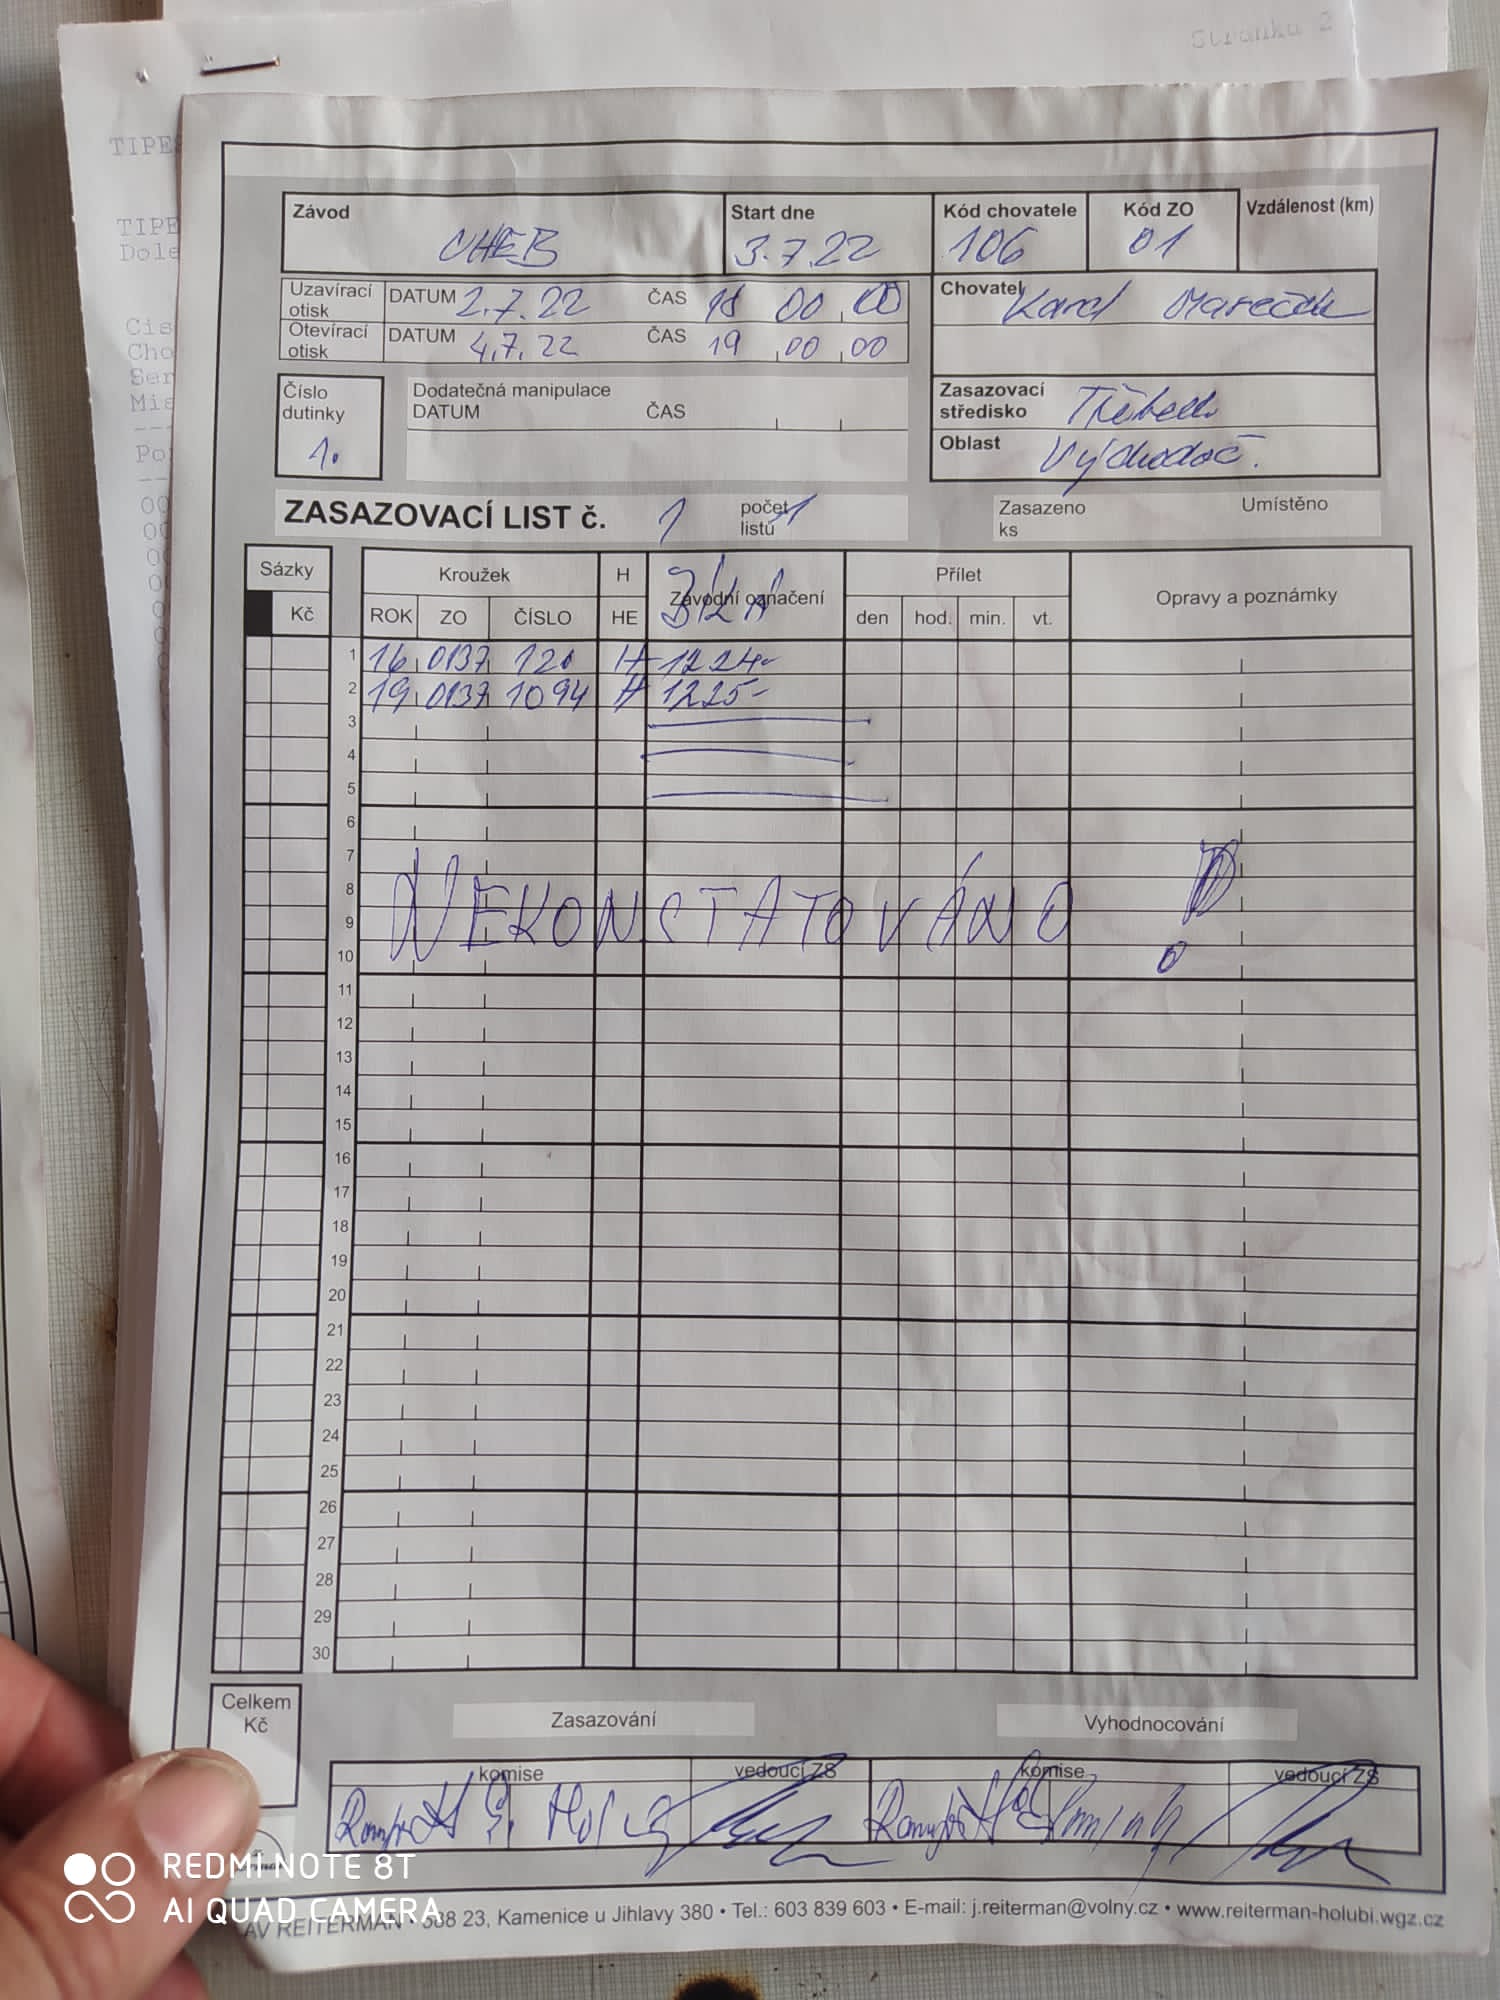 Stránka 2
TIPES
TIPE
Dole
Cis
Cho
Ser
Mis
---
Po
--
00
00
00
00
00
00
Závod CHEB Start dne 3.7.22 Kód chovatele 106 Kód ZO 01 Vzdálenost (km)
Uzavírací otisk DATUM 2.7.22 ČAS 18 00 00
Otevírací otisk DATUM 4.7.22 ČAS 19 00 00
Chovatel Karel Mareček
Číslo dutinky 1.
Dodatečná manipulace
DATUM ČAS
Zasazovací středisko
Oblast Východoč.
ZASAZOVACÍ LIST č. 1 počet listů 1 Zasazeno ks Umístěno
Sázky Kroužek H Závodní označení Přílet Opravy a poznámky
Kč ROK ZO ČÍSLO HE den hod. min. vt.
1 16 0137 120 H 1224-
2 19 0137 1094 H 1225-
3
4
5
6
7
8
NEKONSTATOVÁNO !
9
10
11
12
13
14
15
16
17
18
19
20
21
22
23
24
25
26
27
28
29
30
Celkem Kč
Zasazování Vyhodnocování
komise vedoucí ZS komise vedoucí ZS
REDMI NOTE 8T
AI QUAD CAMERA
AV REITERMAN • 588 23, Kamenice u Jihlavy 380 • Tel.: 603 839 603 • E-mail: j.reiterman@volny.cz • www.reiterman-holubi.wgz.cz